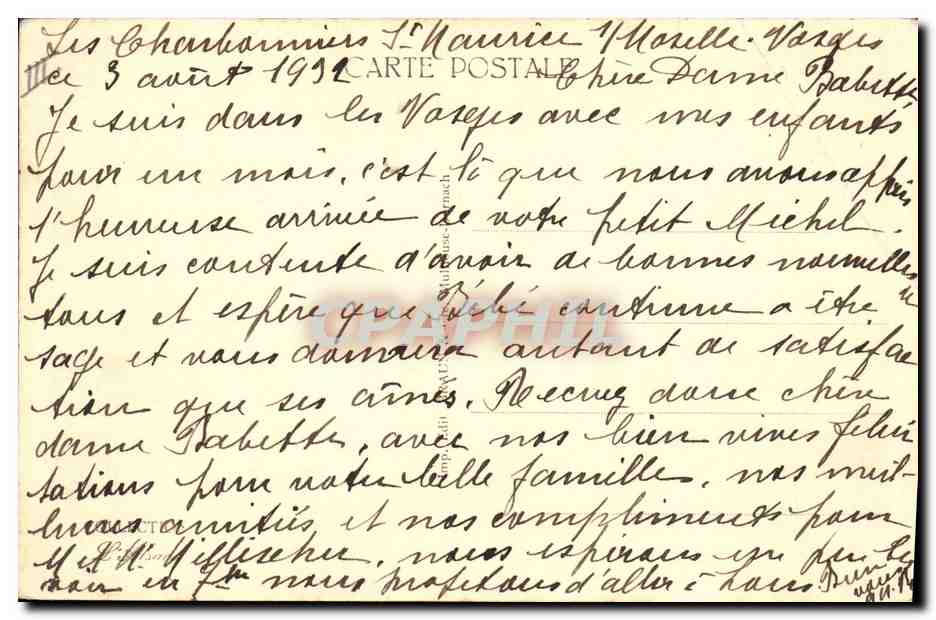 Les Charbonniers St Maurice s/Moselle. Vosges
III ce 3 août 1932 CARTE POSTALE Chère Dame Babette
Je suis dans les Vosges avec mes enfants
pour un mois, c'est là que nous avons appris
l'heureuse arrivée de votre petit Michel.
Je suis contente d'avoir de bonnes nouvelles de
tous et espère que Bébé continue a être
sage et vous donnera autant de satisfac
tion que ses aînés. Recevez donc chère
dame Babette, avec nos bien vives félici
tations pour votre belle famille, nos meil-
leures amitiés, et nos compliments pour
M et Me Millischer, nous espérons un peu le
voir en 7bre nous profitons d'aller à Bien
CPAPHIL